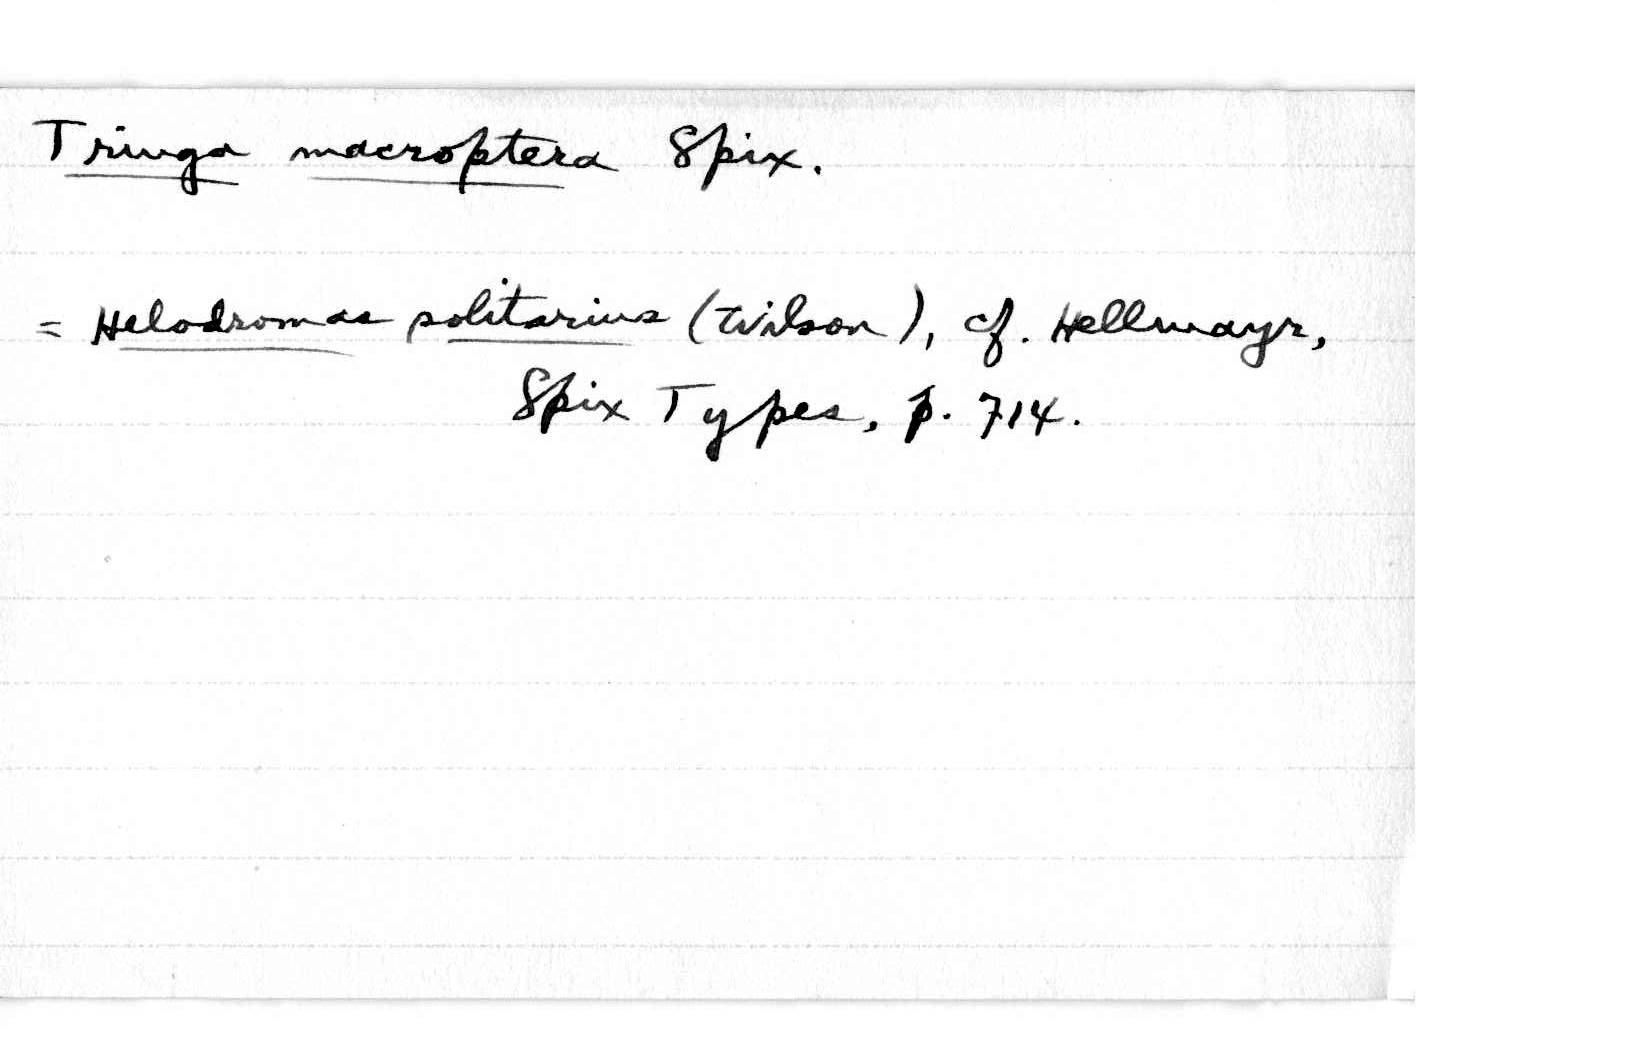 Tringa macroptera Spix.
= Helodromas solitarius (Wilson), cf. Hellmayr,
Spix Types, p. 714.